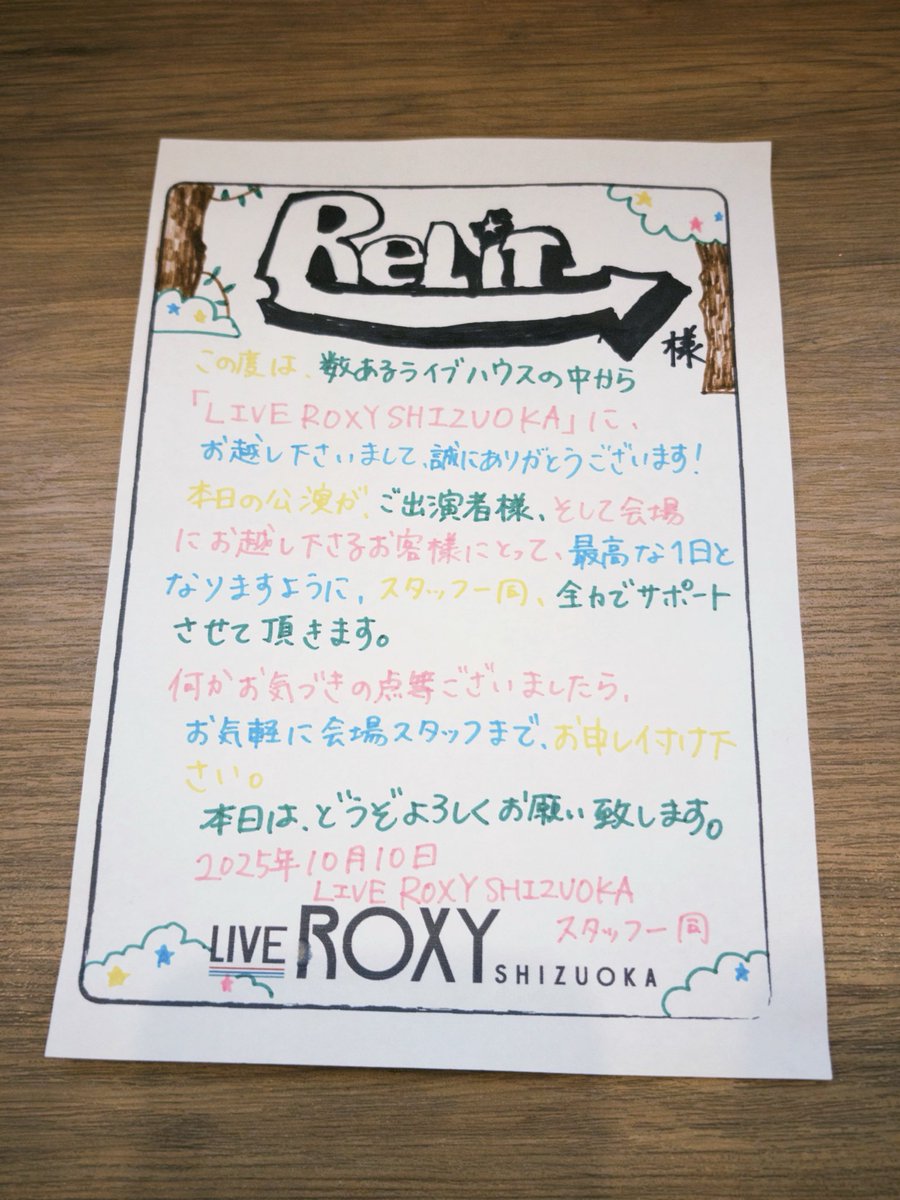 ReLiT
様
この度は、数あるライブハウスの中から
「LIVE ROXY SHIZUOKA」に、
お越し下さいまして、誠にありがとうございます!
本日の公演が、ご出演者様、そして会場
にお越し下さるお客様にとって、最高な1日と
なりますように、スタッフ一同、全力でサポート
させて頂きます。
何かお気づきの点等ございましたら、
お気軽に会場スタッフまで、お申し付け下
さい。
本日は、どうぞよろしくお願い致します。
2025年10月10日
LIVE ROXY SHIZUOKA
スタッフ一同
LIVE ROXY SHIZUOKA